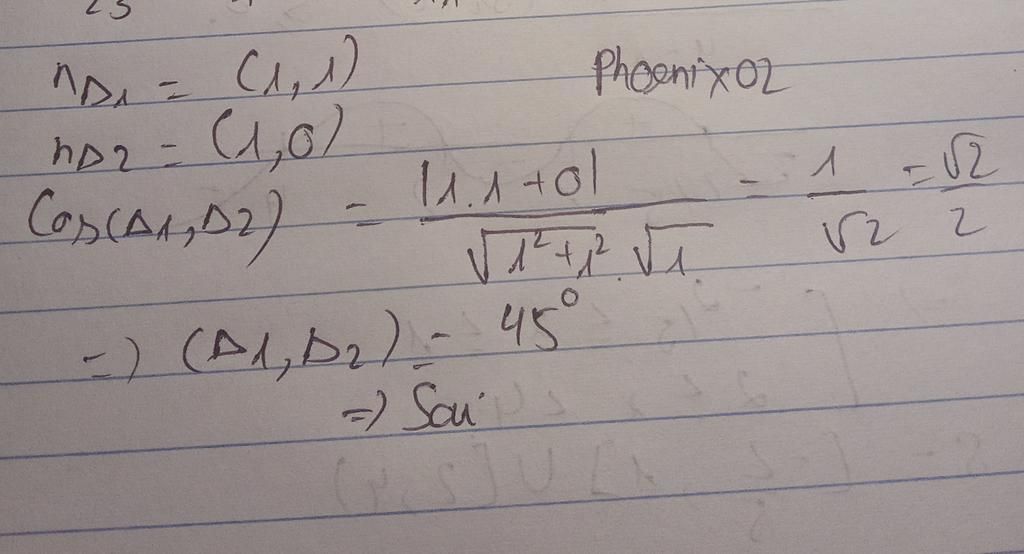 23
n_Δ1 = (1,1) Phoenix02
n_Δ2 = (1,0)
Cos(Δ1,Δ2) = |1.1+0| / √(1²+1²) . √1 = 1/√2 = √2/2
=> (Δ1,Δ2) = 45°
=> Sai